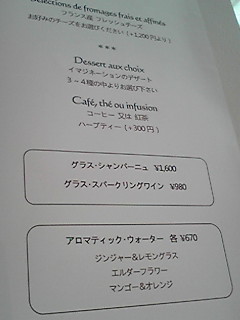 Sélections de fromages frais et affinés
フランス産 フレッシュチーズ
お好みのチーズをお選びください (+1,200円より)
***
Dessert aux choix
イマジネーションのデザート
3-4種の中よりお選び下さい
Café, thé ou infusion
コーヒー 又は 紅茶
ハーブティー (+300円)
グラス・シャンパーニュ ¥1,600
グラス・スパークリングワイン ¥980
アロマティック・ウォーター 各 ¥670
ジンジャー&レモングラス
エルダーフラワー
マンゴー&オレンジ